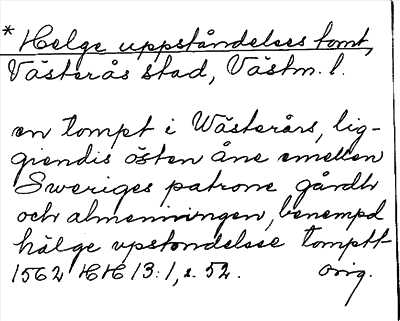 * Helge uppståndelses tomt,
Västerås stad, Västm. l.
en tompt i Wästerårs, lig-
giendis östen åne emellen
Sweriges patrone gårdh
och almenningen, benempd
hälge vpstondelsse tomptt
1562 HH 13:1, s. 52. Orig.